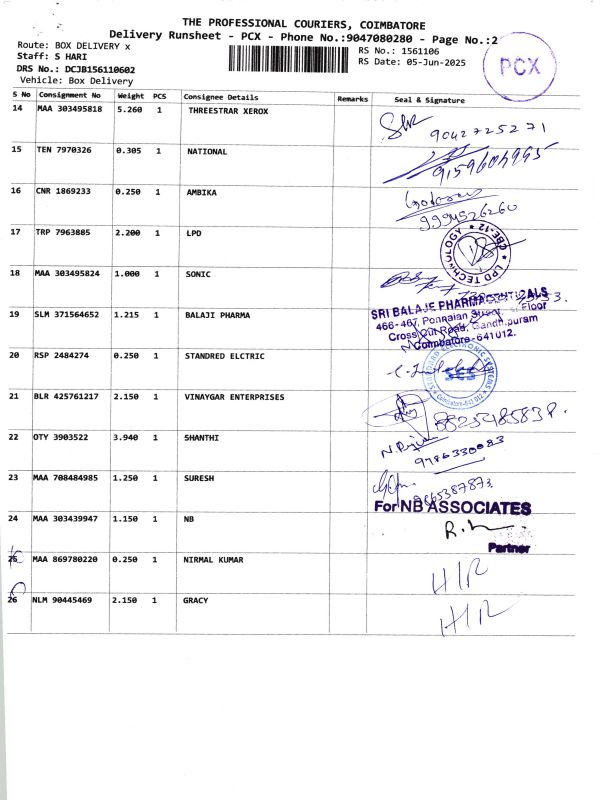 THE PROFESSIONAL COURIERS, COIMBATORE
Delivery Runsheet - PCX - Phone No.:9047080280 - Page No.:2
Route: BOX DELIVERY x
Staff: S HARI
DRS No.: DCJB156110602
Vehicle: Box Delivery
RS No.: 1561106
RS Date: 05-Jun-2025
PCX
S No Consignment No Weight PCS Consignee Details Remarks Seal & Signature
14 MAA 303495818 5.260 1 THREESTRAR XEROX
9042725271
15 TEN 7970326 0.305 1 NATIONAL
16 CNR 1869233 0.250 1 AMBIKA
9994526260
17 TRP 7963885 2.200 1 LPD
LPD TECHNOLOGY * CBE-12 *
18 MAA 303495824 1.000 1 SONIC
19 SLM 371564652 1.215 1 BALAJI PHARMA
SRI BALAJE PHARMACEUTICALS
466-467, Ponnaian Street, Floor
Cross Cut Road, Gandhipuram
Coimbatore-641012.
20 RSP 2484274 0.250 1 STANDRED ELCTRIC
SES
21 BLR 425761217 2.150 1 VINAYGAR ENTERPRISES
22 OTY 3903522 3.940 1 SHANTHI
9786330083
23 MAA 708484985 1.250 1 SURESH
24 MAA 303439947 1.150 1 NB
For NB ASSOCIATES
Partner
25 MAA 869780220 0.250 1 NIRMAL KUMAR
H/R
26 NLM 90445469 2.150 1 GRACY
H/R